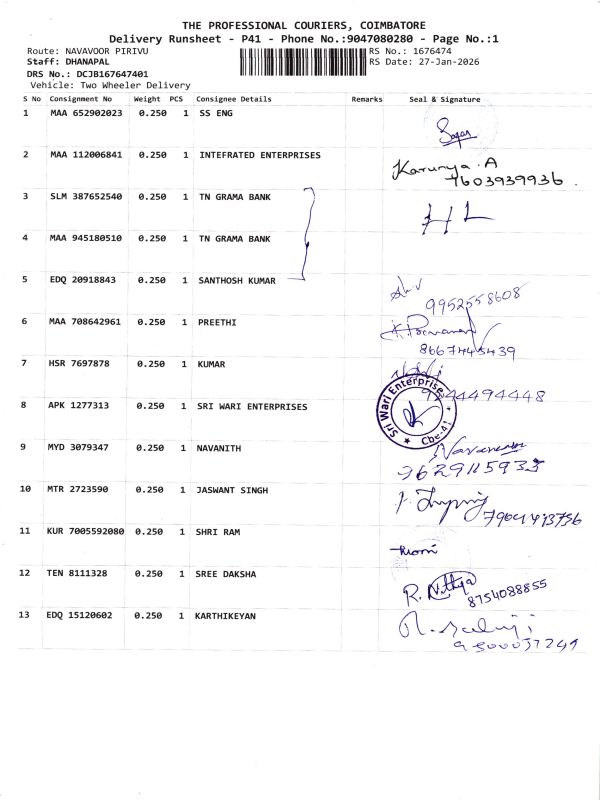 THE PROFESSIONAL COURIERS, COIMBATORE
Delivery Runsheet - P41 - Phone No.:9047080280 - Page No.:1
Route: NAVAVOOR PIRIVU RS No.: 1676474
Staff: DHANAPAL RS Date: 27-Jan-2026
DRS No.: DCJB167647401
Vehicle: Two Wheeler Delivery
S No Consignment No Weight PCS Consignee Details Remarks Seal & Signature
1 MAA 652902023 0.250 1 SS ENG
2 MAA 112006841 0.250 1 INTEFRATED ENTERPRISES
Karunya.A
7603939936.
3 SLM 387652540 0.250 1 TN GRAMA BANK
4 MAA 945180510 0.250 1 TN GRAMA BANK
5 EDQ 20918843 0.250 1 SANTHOSH KUMAR
9952558608
6 MAA 708642961 0.250 1 PREETHI
7 HSR 7697878 0.250 1 KUMAR
8 APK 1277313 0.250 1 SRI WARI ENTERPRISES
Sri Wari Enterprise
Cbe-41
9 MYD 3079347 0.250 1 NAVANITH
10 MTR 2723590 0.250 1 JASWANT SINGH
11 KUR 7005592080 0.250 1 SHRI RAM
12 TEN 8111328 0.250 1 SREE DAKSHA
R. Nithya
8754088855
13 EDQ 15120602 0.250 1 KARTHIKEYAN